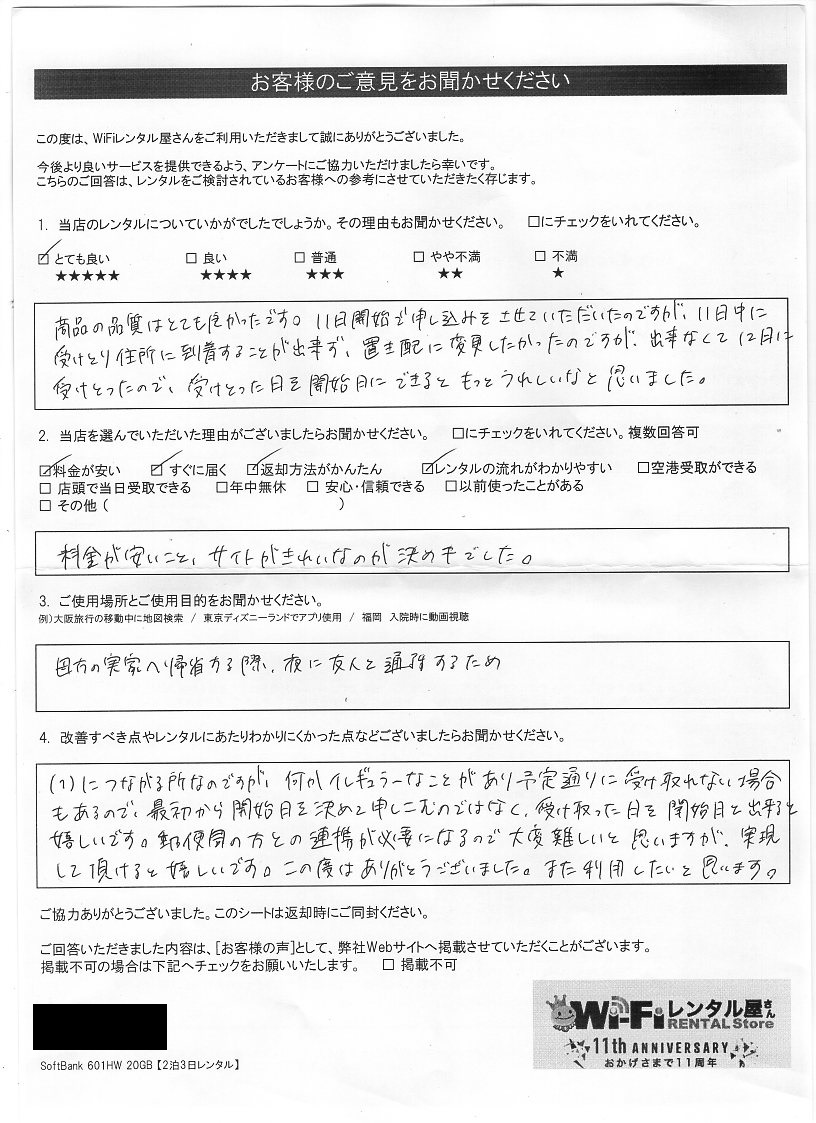 お客様のご意見をお聞かせください
この度は、WiFiレンタル屋さんをご利用いただきまして誠にありがとうございました。
今後より良いサービスを提供できるよう、アンケートにご協力いただけましたら幸いです。
こちらのご回答は、レンタルをご検討されているお客様への参考にさせていただきたく存じます。
1. 当店のレンタルについていかがでしたでしょうか。その理由もお聞かせください。 □にチェックをいれてください。
☑ とても良い □ 良い □ 普通 □ やや不満 □ 不満
★★★★★ ★★★★ ★★★ ★★ ★
商品の品質はとても良かったです。11日開始で申し込みをさせていただいたのですが、11日中に
受けとり住所に到着することが出来ず、置き配に変更したかったのですが、出来なくて12日に
受けとったので、受けとった日を開始日にできるともっとうれしいなと思いました。
2. 当店を選んでいただいた理由がございましたらお聞かせください。 □にチェックをいれてください。複数回答可
☑料金が安い ☑ すぐに届く ☑返却方法がかんたん ☑レンタルの流れがわかりやすい □空港受取ができる
□ 店頭で当日受取できる □年中無休 □ 安心・信頼できる □以前使ったことがある
□ その他 ( )
料金が安いこと、サイトがきれいなのが決め手でした。
3. ご使用場所とご使用目的をお聞かせください。
例)大阪旅行の移動中に地図検索 / 東京ディズニーランドでアプリ使用 / 福岡 入院時に動画視聴
田方の実家へ帰省する際、夜に友人と通話するため
4. 改善すべき点やレンタルにあたりわかりにくかった点などございましたらお聞かせください。
(1)につながる所なのですが、何かイレギュラーなことがあり予定通りに受け取れない場合
もあるので、最初から開始日を決めて申しこむのではなく、受け取った日を開始日と出来ると
嬉しいです。郵便局の方との連携が必要になるので大変難しいと思いますが、実現
して頂けると嬉しいです。この度はありがとうございました。また利用したいと思います。
ご協力ありがとうございました。このシートは返却時にご同封ください。
ご回答いただきました内容は、[お客様の声]として、弊社Webサイトへ掲載させていただくことがございます。
掲載不可の場合は下記へチェックをお願いいたします。 □ 掲載不可
Wi-Fiレンタル屋さん
RENTAL Store
11th ANNIVERSARY
おかげさまで11周年
SoftBank 601HW 20GB【2泊3日レンタル】